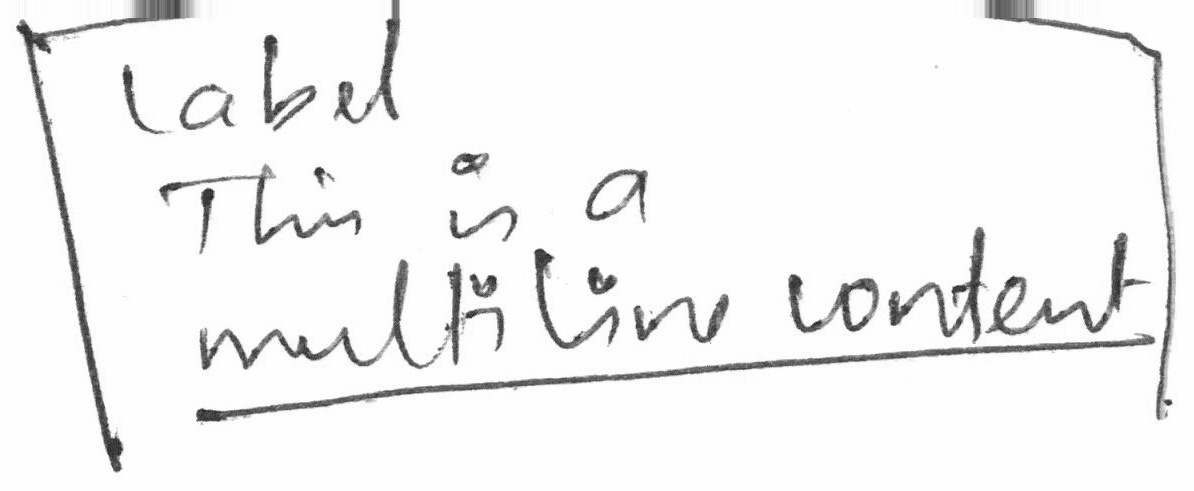 Label
This is a
multiline content